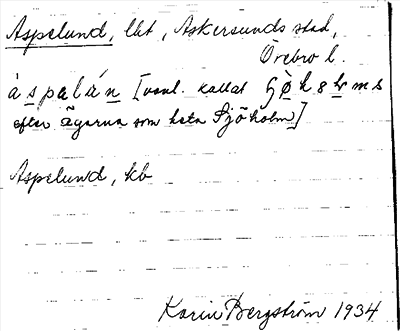 Aspelund, lht, Askersunds stad,
Örebro l.
áspalún [vanl. kallat
efter ägarna som heta Sjöholm]
Aspelund, kb
Karin Bergström 1934